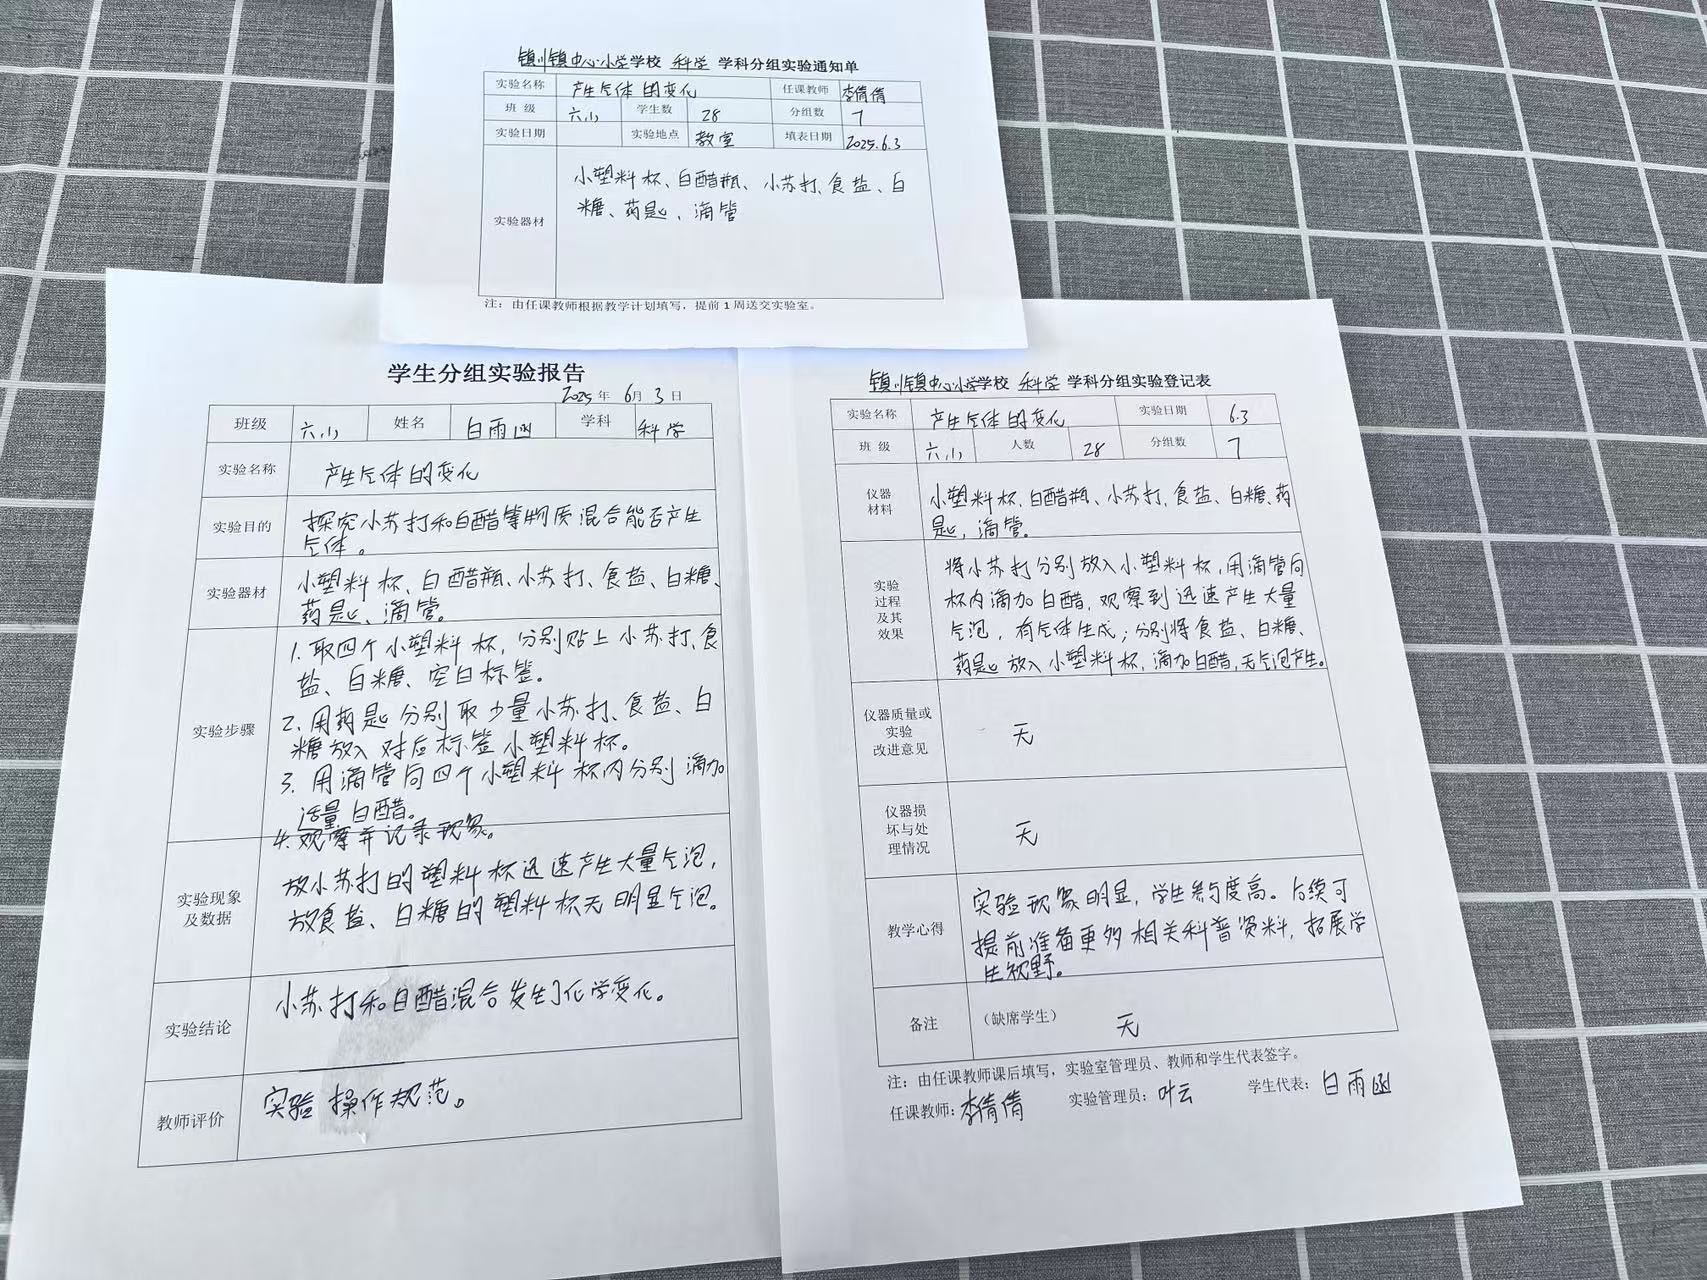 镇川镇中心小学学校 科学 学科分组实验通知单
实验名称 产生气体的变化 任课教师 李倩倩
班 级 六小 学生数 28 分组数 7
实验日期 实验地点 教室 填表日期 2025.6.3
实验器材
小塑料杯、白醋瓶、小苏打、食盐、白
糖、药匙、滴管
注：由任课教师根据教学计划填写，提前1周送交实验室。
学生分组实验报告
2025 年 6月 3 日
班级 六小 姓名 白雨函 学科 科学
实验名称 产生气体的变化
实验目的
探究小苏打和白醋等物质混合能否产生
气体。
实验器材
小塑料杯、白醋瓶、小苏打、食盐、白糖、
药匙、滴管。
实验步骤
1. 取四个小塑料杯，分别贴上小苏打、食
盐、白糖、空白标签。
2. 用药匙分别取少量小苏打、食盐、白
糖放入对应标签小塑料杯。
3. 用滴管向四个小塑料杯内分别滴加
适量白醋。
4. 观察并记录现象。
实验现象
及数据
放小苏打的塑料杯迅速产生大量气泡，
放食盐、白糖的塑料杯无明显气泡。
实验结论
小苏打和白醋混合发生了化学变化。
教师评价
实验操作规范。
镇川镇中心小学学校 科学 学科分组实验登记表
实验名称 产生气体的变化 实验日期 6.3
班 级 六小 人数 28 分组数 7
仪器
材料
小塑料杯、白醋瓶、小苏打、食盐、白糖、药
匙，滴管。
实验
过程
及其
效果
将小苏打分别放入小塑料杯，用滴管向
杯内滴加白醋，观察到迅速产生大量
气泡，有气体生成；分别将食盐、白糖、
药匙放入小塑料杯，滴加白醋，无气泡产生。
仪器质量或
实验
改进意见
无
仪器损
坏与处
理情况
无
教学心得
实验现象明显，学生参与度高。后续可
提前准备更多相关科普资料，拓展学
生视野。
备注 （缺席学生） 无
注：由任课教师课后填写，实验室管理员、教师和学生代表签字。
任课教师：李倩倩 实验管理员：叶云 学生代表：白雨函